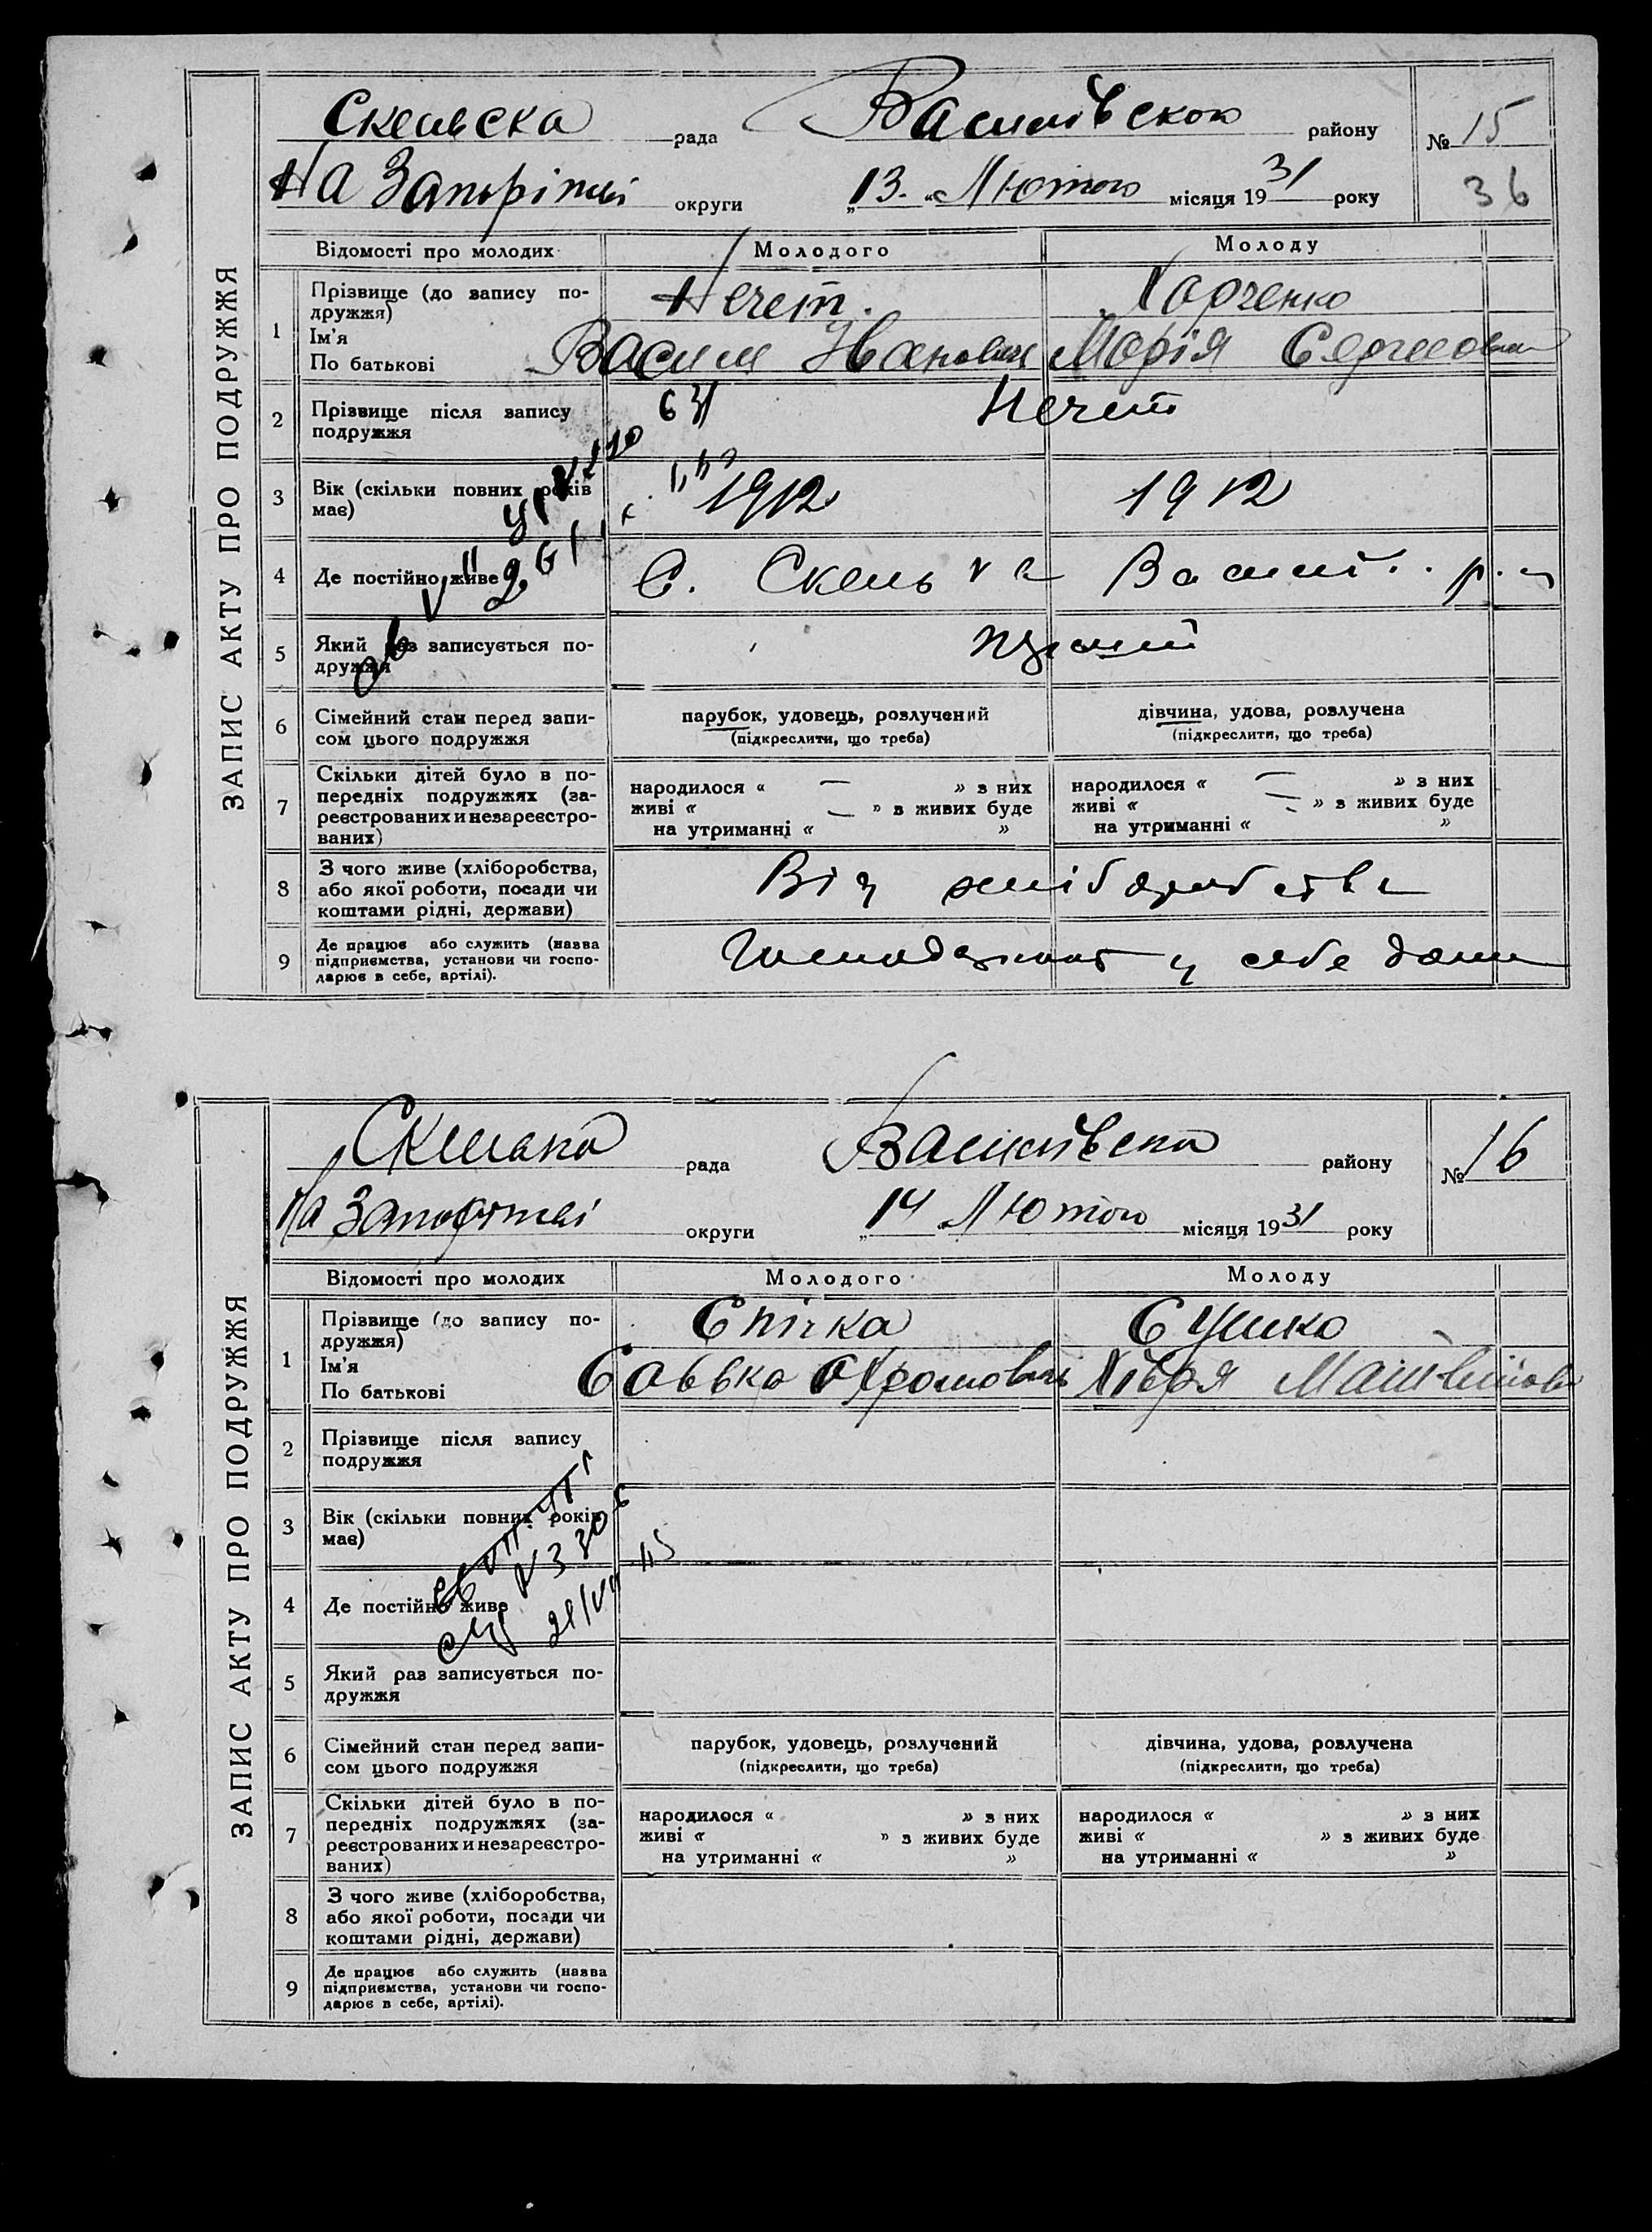 ЗАПИС АКТУ ПРО ПОДРУЖЖЯ
Скельска рада Василівскою району № 15
На Запоріжжі округи „13.“ Лютого місяця 1931 року 36
Відомості про молодих Молодого Молоду
1 Прізвище (до запису подружжя) Нечет. Харченко
Ім'я
По батькові Василь Іванович Марія Сергієовна
2 Прізвище після запису подружжя Нечет
3 Вік (скільки повних років має) 1912 1912
4 Де постійно живе С. Скелька Василів. р.
5 Який раз записується подружжя
6 Сімейний стан перед записом цього подружжя парубок, удовець, розлучений дівчина, удова, розлучена
(підкреслити, що треба) (підкреслити, що треба)
7 Скільки дітей було в попередніх подружжях (зареєстрованих и незареєстрованих) народилося « — » з них народилося « — » з них
живі « — » в живих буде живі « — » в живих буде
на утриманні « » на утриманні « »
8 З чого живе (хліборобства, або якої роботи, посади чи коштами рідні, держави) Від хліборобства
9 Де працює або служить (назва підприємства, установи чи господарює в себе, артілі). у себе дома
ЗАПИС АКТУ ПРО ПОДРУЖЖЯ
рада Василівска району № 16
На Запоріжжі округи „14 Лютого місяця 1931 року
Відомості про молодих Молодого Молоду
1 Прізвище (до запису подружжя) Спічка Сушко
Ім'я
По батькові Савка
2 Прізвище після запису подружжя
3 Вік (скільки повних років має)
4 Де постійно живе
5 Який раз записується подружжя
6 Сімейний стан перед записом цього подружжя парубок, удовець, розлучений дівчина, удова, розлучена
(підкреслити, що треба) (підкреслити, що треба)
7 Скільки дітей було в попередніх подружжях (зареєстрованих и незареєстрованих) народилося « » з них народилося « » з них
живі « » з живих буде живі « » з живих буде
на утриманні « » на утриманні « »
8 З чого живе (хліборобства, або якої роботи, посади чи коштами рідні, держави)
9 Де працює або служить (назва підприємства, установи чи господарює в себе, артілі).